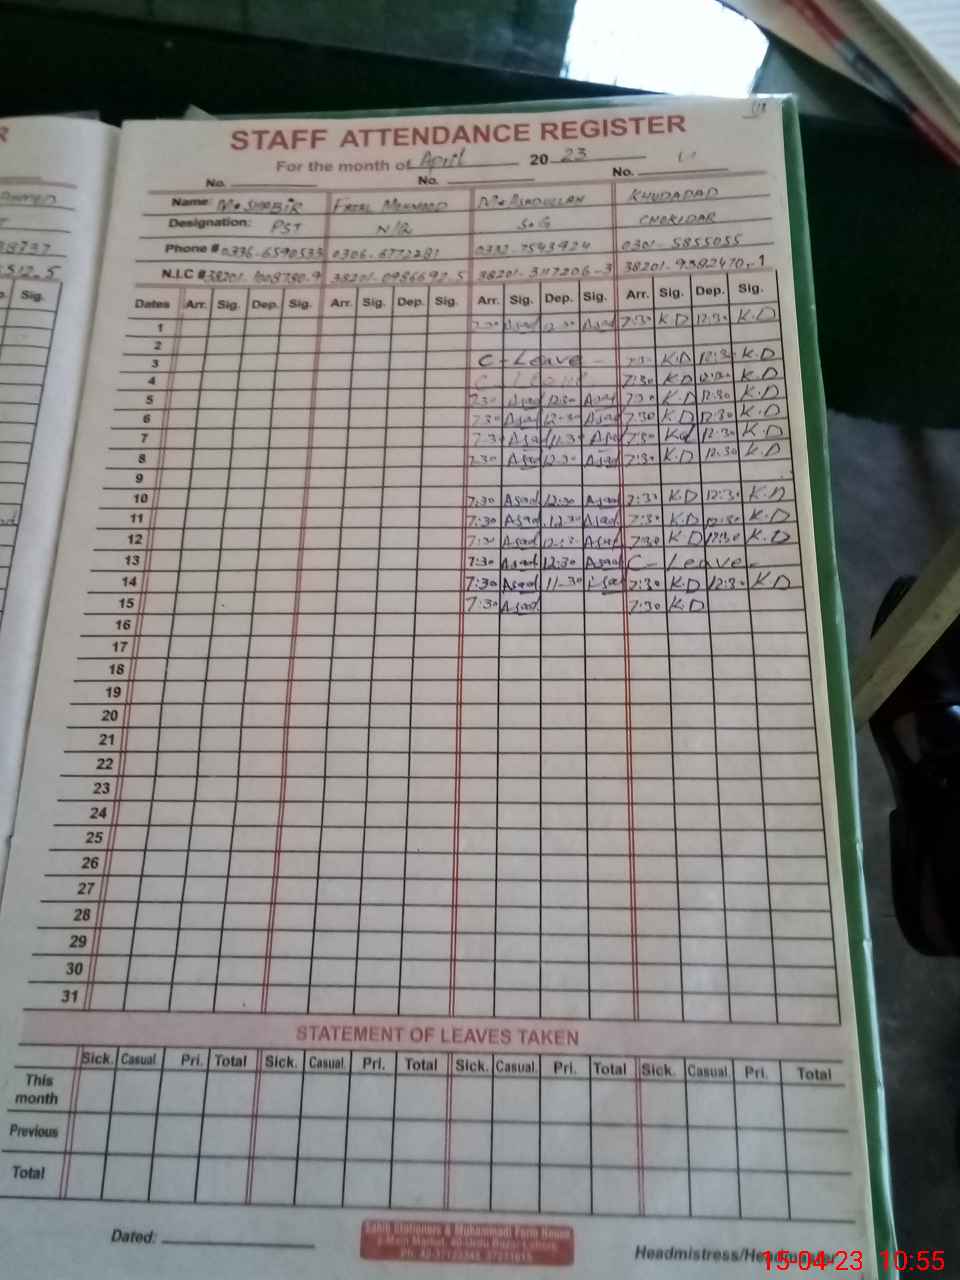 STAFF ATTENDANCE REGISTER
For the month of April 2023
No. No. No.
Name: M. SHABIR FAZAL MEHMOOD M. ASADULLAH KHUDADAD
Designation: PST N/Q S.G CHOKIDAR
Phone # 0336-6590533 0306-6772281 0332-7543924 0301-5855055
N.I.C # 38201- 38201-0986692-5 38201-3117206-3 38201-9382470-1
Dates Arr. Sig. Dep. Sig. Arr. Sig. Dep. Sig. Arr. Sig. Dep. Sig. Arr. Sig. Dep. Sig.
1 7:30 Asad 12:30 Asad 7:30 K.D 12:30 K.D
2
3 C-Leave 7:30 K.D 12:30 K.D
4 C-Leave 7:30 K.D 12:30 K.D
5 7:30 Asad 12:30 Asad 7:30 K.D 12:30 K.D
6 7:30 Asad 12:30 Asad 7:30 K.D 12:30 K.D
7 7:30 Asad 11:30 Asad 7:30 Kd 12:30 K.D
8 7:30 Asad 12:30 Asad 7:30 K.D 12:30 K.D
9
10 7:30 Asad 12:30 Asad 7:30 K.D 12:30 K.D
11 7:30 Asad 12:30 Asad 7:30 K.D 12:30 K.D
12 7:30 Asad 12:30 Asad 7:30 K.D 12:30 K.D
13 7:30 Asad 12:30 Asad C-Leave
14 7:30 Asad 11-30 Asad 7:30 K.D 12:30 K.D
15 7:30 Asad 7:30 K.D
16
17
18
19
20
21
22
23
24
25
26
27
28
29
30
31
STATEMENT OF LEAVES TAKEN
Sick. Casual. Pri. Total Sick. Casual. Pri. Total Sick. Casual. Pri. Total Sick. Casual. Pri. Total
This month
Previous
Total
Dated:
Headmistress/Headmaster
15-04-23 10:55